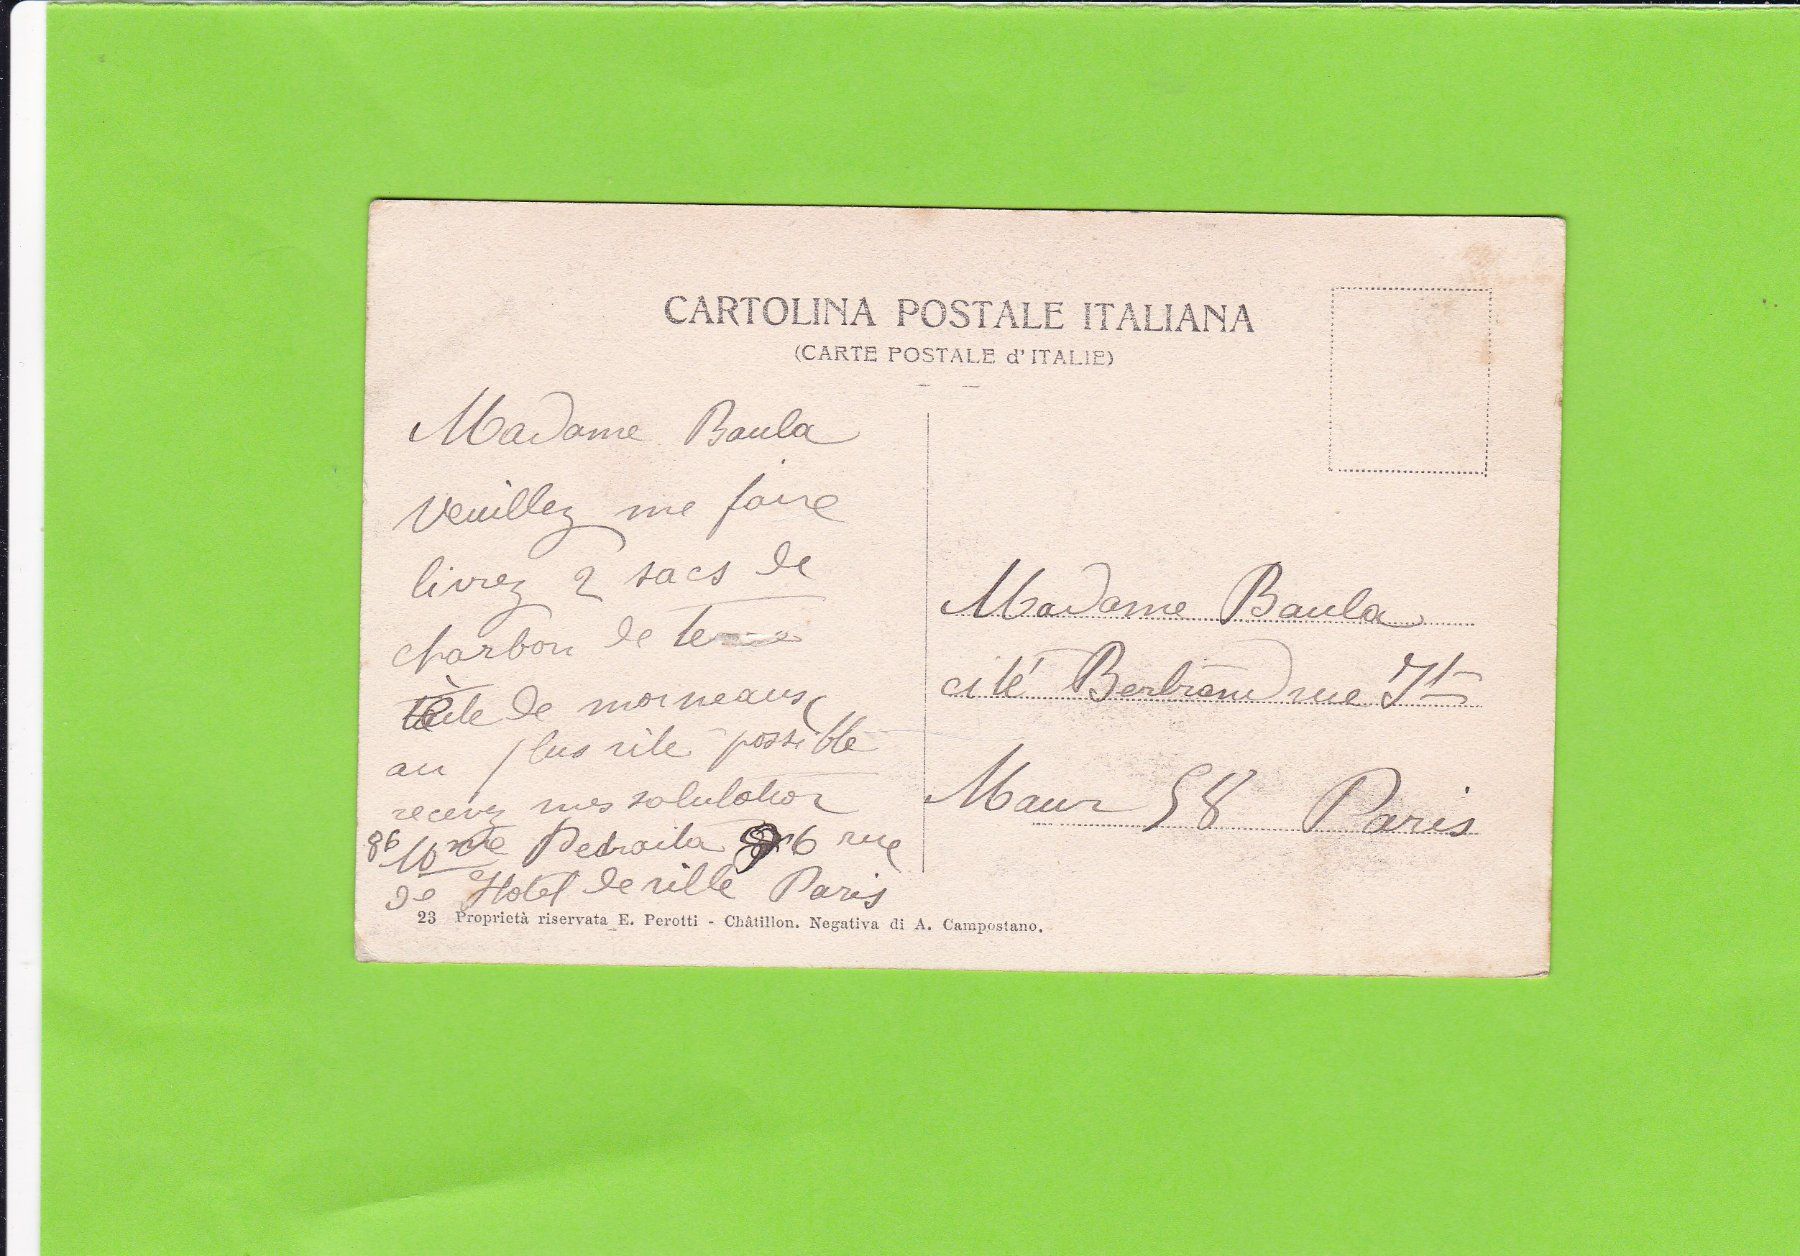 CARTOLINA POSTALE ITALIANA
(CARTE POSTALE d'ITALIE)
Madame Baula
veuillez me faire
livrez 2 sacs de
charbon de terre
tête de morneaux
au plus vite possible
recevez mes salutation
86 Mme Pedraita 86 rue
de Hotel de ville Paris
Madame Baula
cité Bertrand rue St
Maur 58 Paris
23 Proprietà riservata E. Perotti - Châtillon. Negativa di A. Campostano.